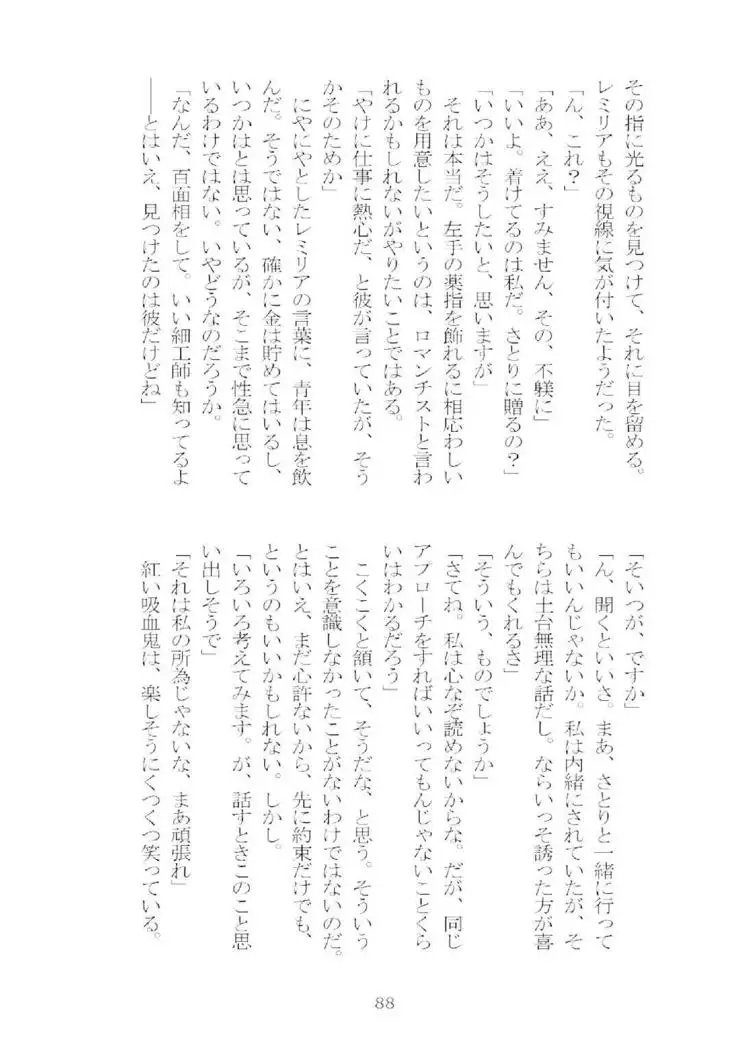 その指に光るものを見つけて、それに目を留める。
レミリアもその視線に気が付いたようだった。
「ん、これ？」
「ああ、ええ、すみません、その、不躾に」
「いいよ。着けてるのは私だ。さとりに贈るの？」
「いつかはそうしたいと、思いますが」
それは本当だ。左手の薬指を飾れるに相応わしい
ものを用意したいというのは、ロマンチストと言わ
れるかもしれないがやりたいことではある。
「やけに仕事に熱心だ、と彼が言っていたが、そう
かそのためか」
にやにやとしたレミリアの言葉に、青年は息を飲
んだ。そうではない、確かに金は貯めてはいるし、
いつかはとは思っているが、そこまで性急に思って
いるわけではない。いやどうなのだろうか。
「なんだ、百面相をして。いい細工師も知ってるよ
――とはいえ、見つけたのは彼だけどね」
「そいつが、ですか」
「ん、聞くといいさ。まあ、さとりと一緒に行って
もいいんじゃないか。私は内緒にされていたが、そ
ちらは土台無理な話だし。ならいっそ誘った方が喜
んでもくれるさ」
「そういう、ものでしょうか」
「さてね。私は心なぞ読めないからな。だが、同じ
アプローチをすればいいってもんじゃないことくら
いはわかるだろう」
こくこくと頷いて、そうだな、と思う。そういう
ことを意識しなかったことがないわけではないのだ。
とはいえ、まだ心許ないから、先に約束だけでも、
というのもいいかもしれない。しかし。
「いろいろ考えてみます。が、話すときこのこと思
い出しそうで」
「それは私の所為じゃないな、まあ頑張れ」
紅い吸血鬼は、楽しそうにくつくつ笑っている。
88